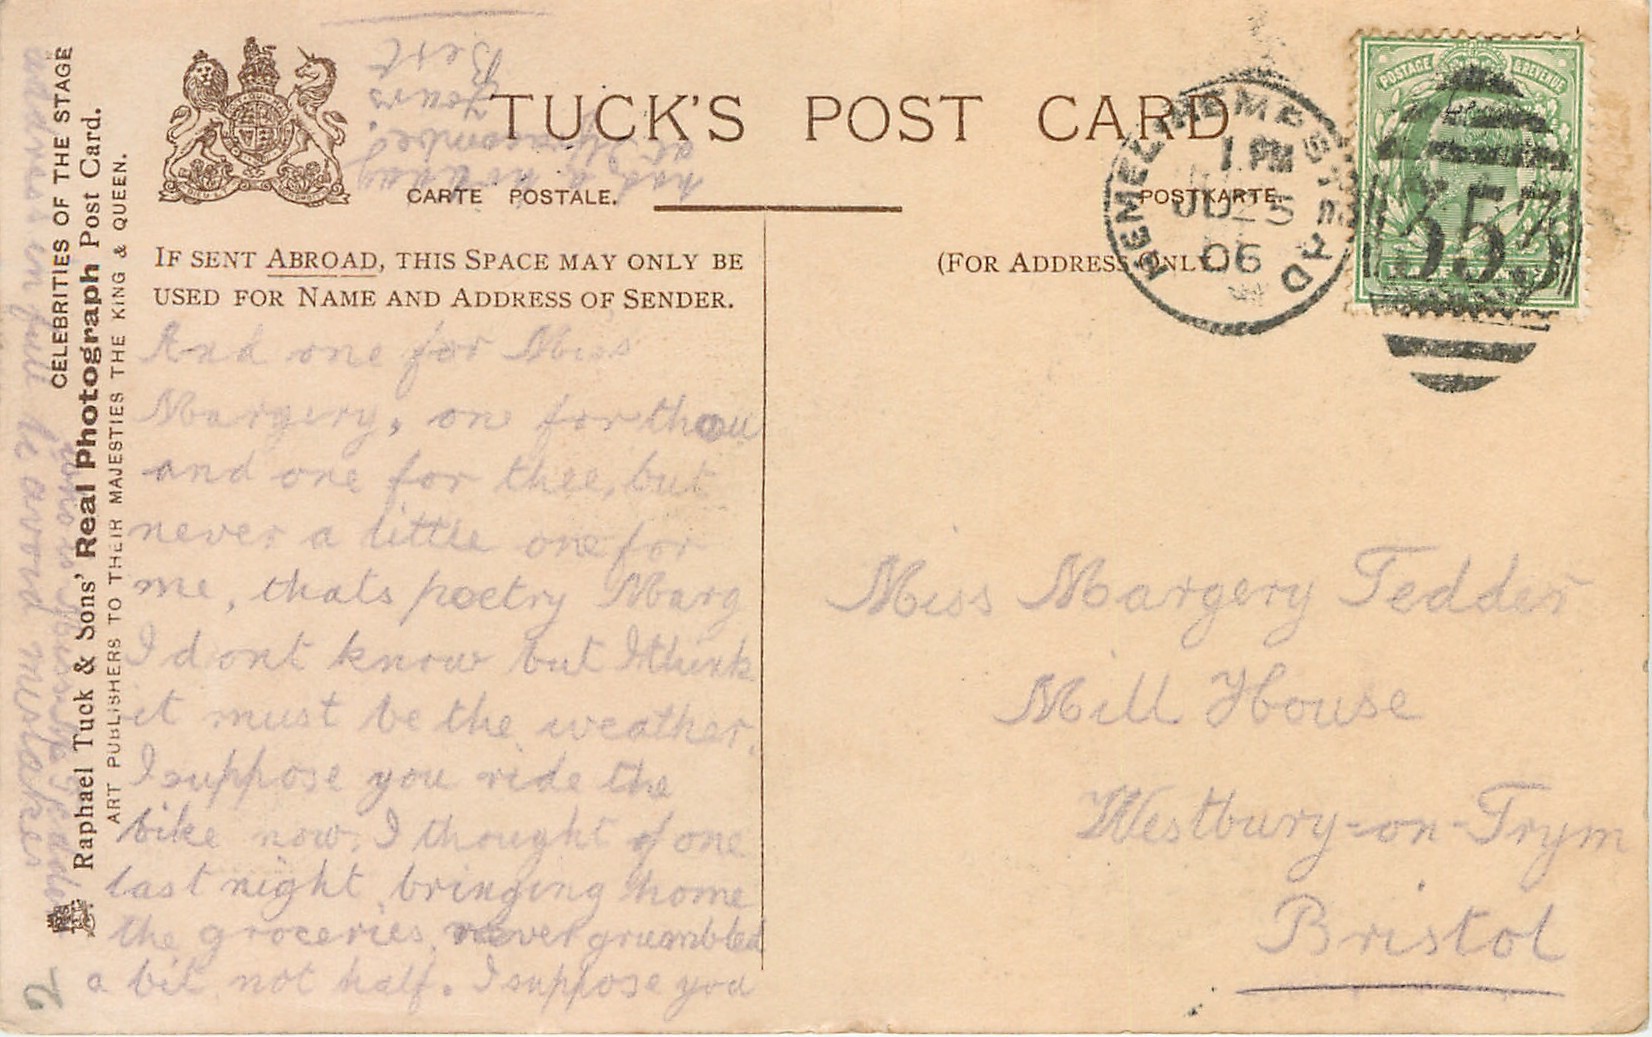 CELEBRITIES OF THE STAGE
Raphael Tuck & Sons' Real Photograph Post Card.
ART PUBLISHERS TO THEIR MAJESTIES THE KING & QUEEN.
TUCK'S POST CARD
CARTE POSTALE.
POSTKARTE
IF SENT ABROAD, THIS SPACE MAY ONLY BE
USED FOR NAME AND ADDRESS OF SENDER.
(FOR ADDRESS ONLY
HEMEL HEMPSTEAD
1 PM
JU 25
06
POSTAGE & REVENUE
353
And one for Miss
Margery, one for thou
and one for thee, but
never a little one for
me, thats poetry Marg
I dont know but I think
it must be the weather.
I suppose you ride the
bike now. I thought of one
last night bringing home
the groceries, never grumbled
a bit, not half. I suppose you
had a holiday
at Ilfracombe.
Yours
Bert
address in full to avoid mistakes
Miss Margery Tedder
Mill House
Westbury-on-Trym
Bristol